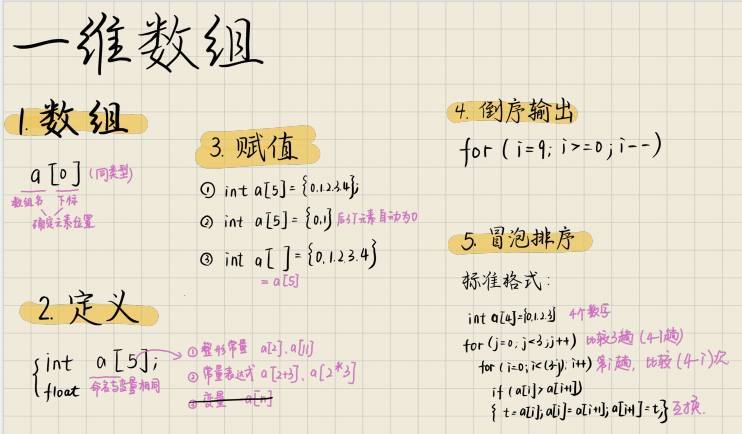 一维数组
1. 数组
a[0] (同类型)
数组名 下标
确定元素位置
2. 定义
{ int a[5];
float 命名与变量相同
① 整形常量 a[2]、a[11]
② 常量表达式 a[2+3]、a[2*3]
③ 变量 a[n]
3. 赋值
① int a[5]={0.1.2.3.4};
② int a[5]={0.1} 后3个元素自动为0
③ int a[ ]={0.1.2.3.4}
=a[5]
4. 倒序输出
for(i=9; i>=0; i--)
5. 冒泡排序
标准格式:
int a[4]={0.1.2.3} 4个数字
for(j=0; j<3; j++) 比较3趟(4-1趟)
for(i=0; i<(3-j); i++) 第i趟, 比较(4-i)次
if(a[i]>a[i+1])
{ t=a[i]; a[i]=a[i+1]; a[i+1]=t;} 互换.